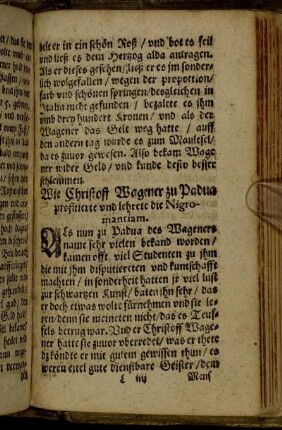 dete er in ein schön Roß / vnd bot es feil
vnd ließ es dem Hertzog alda antragen.
Als er dieses gesehen / ließ er es jm sonder-
lich wolgefallen / wegen der proportion /
farb vnd schönen springen / desgleichen in
Italia nicht gefunden / bezalete es ihm
vmb drey hundert Kronen / vnd als der
Wagener das Gelt weg hatte / auff
den andern tag wurde es zum Maulesel /
da es zuuor gewesen. Also bekam Wage-
ner wider Geld / vnd kunde desto besser
schlemmen.
Wie Christoff Wagener zu Padua
profitierte vnd lehrete die Nigro-
mantiam.
Als nun zu Padua des Wageners
name sehr vielen bekand worden /
kamen offt viel Studenten zu jhm
die mit jhm disputireten vnd kuntschafft
machten / in sonderheit hatten jr viel lust
zur schwartzen Kunst / baten jhn sehr / das
er doch etwas wolte fürnehmen vnd sie le-
ren / denn sie meineten nicht / das es Teuf-
fels betrug war. Vnd er Christoff Wage-
ner hatte sie zuuor vberredet / was er thete
dz köndte er mit gutem gewissen thun / es
weren eitel gute dienstbare Geister / dem
L iiij Men-